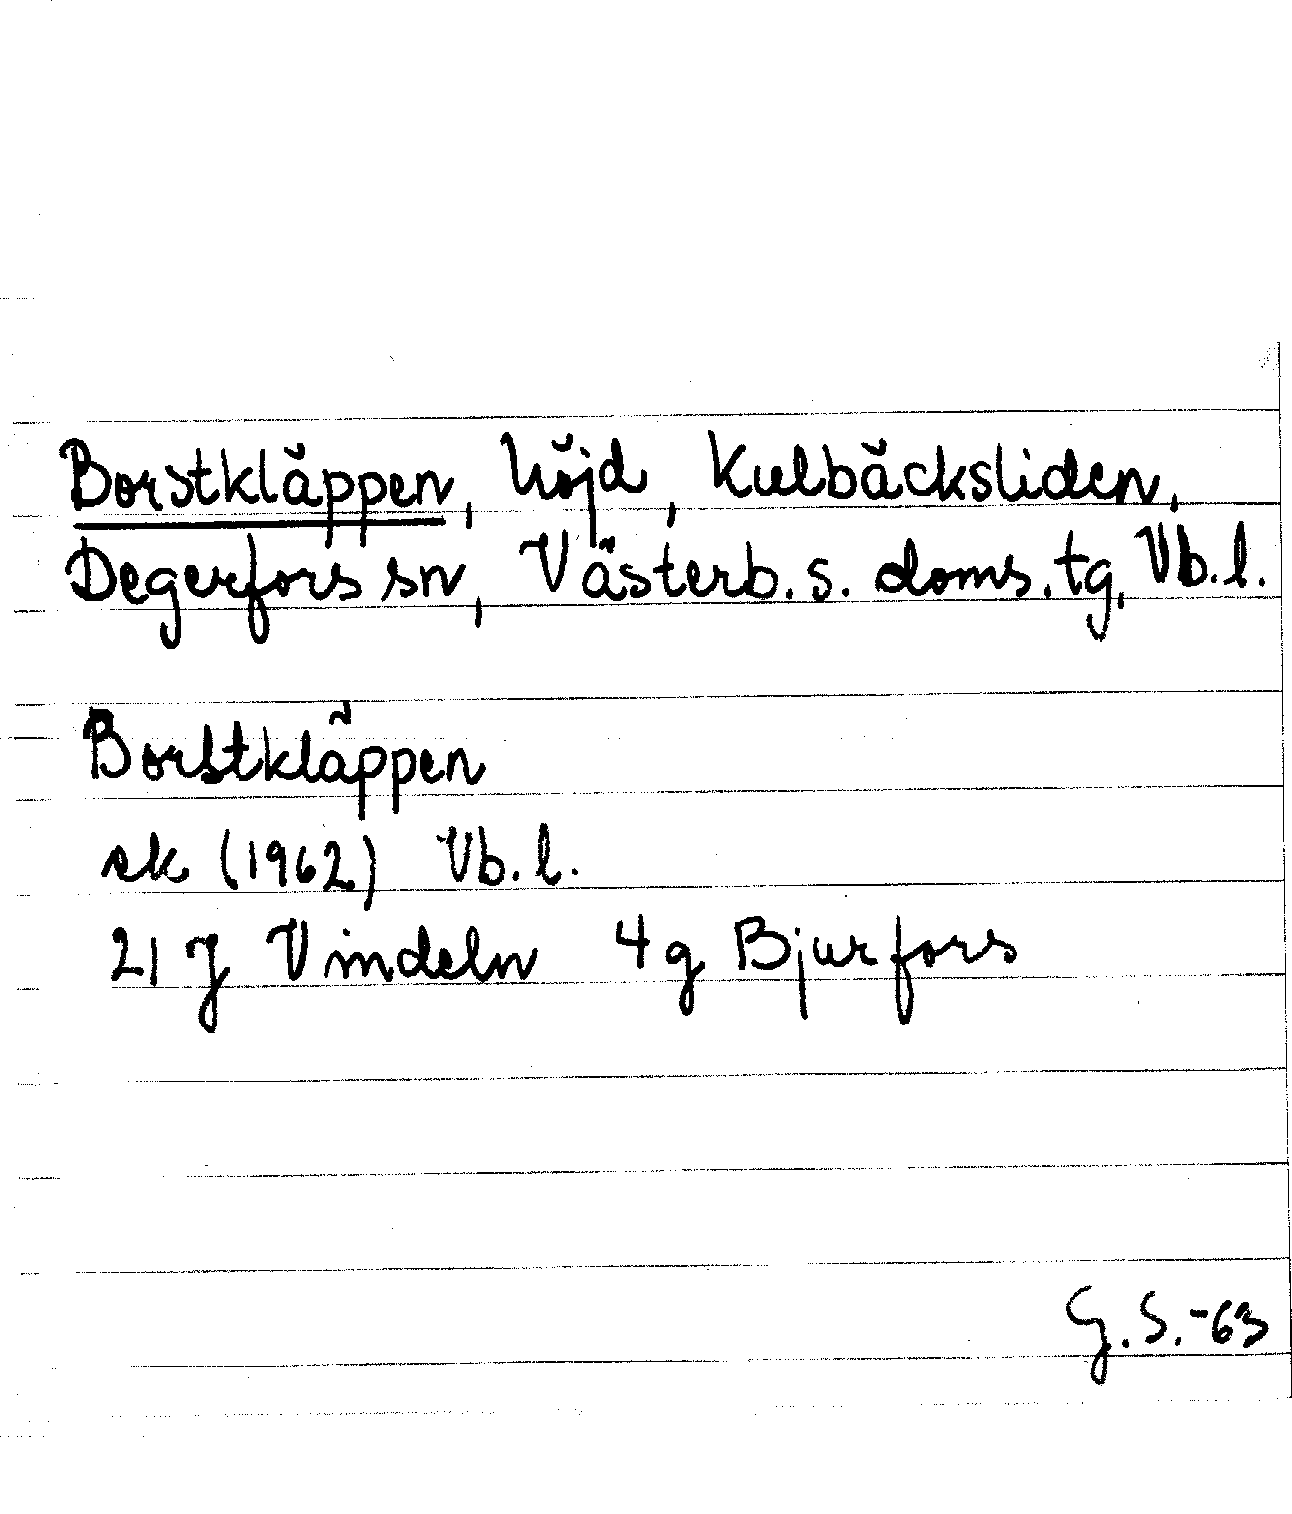 Borstkläppen, höjd, Kulbäcksliden,
Degerfors sn, Västerb. s. doms. tg, Vb. l.
Borstkläppen
ek (1962) Vb. l.
21 J Vindeln 4g Bjurfors
G. S. -63